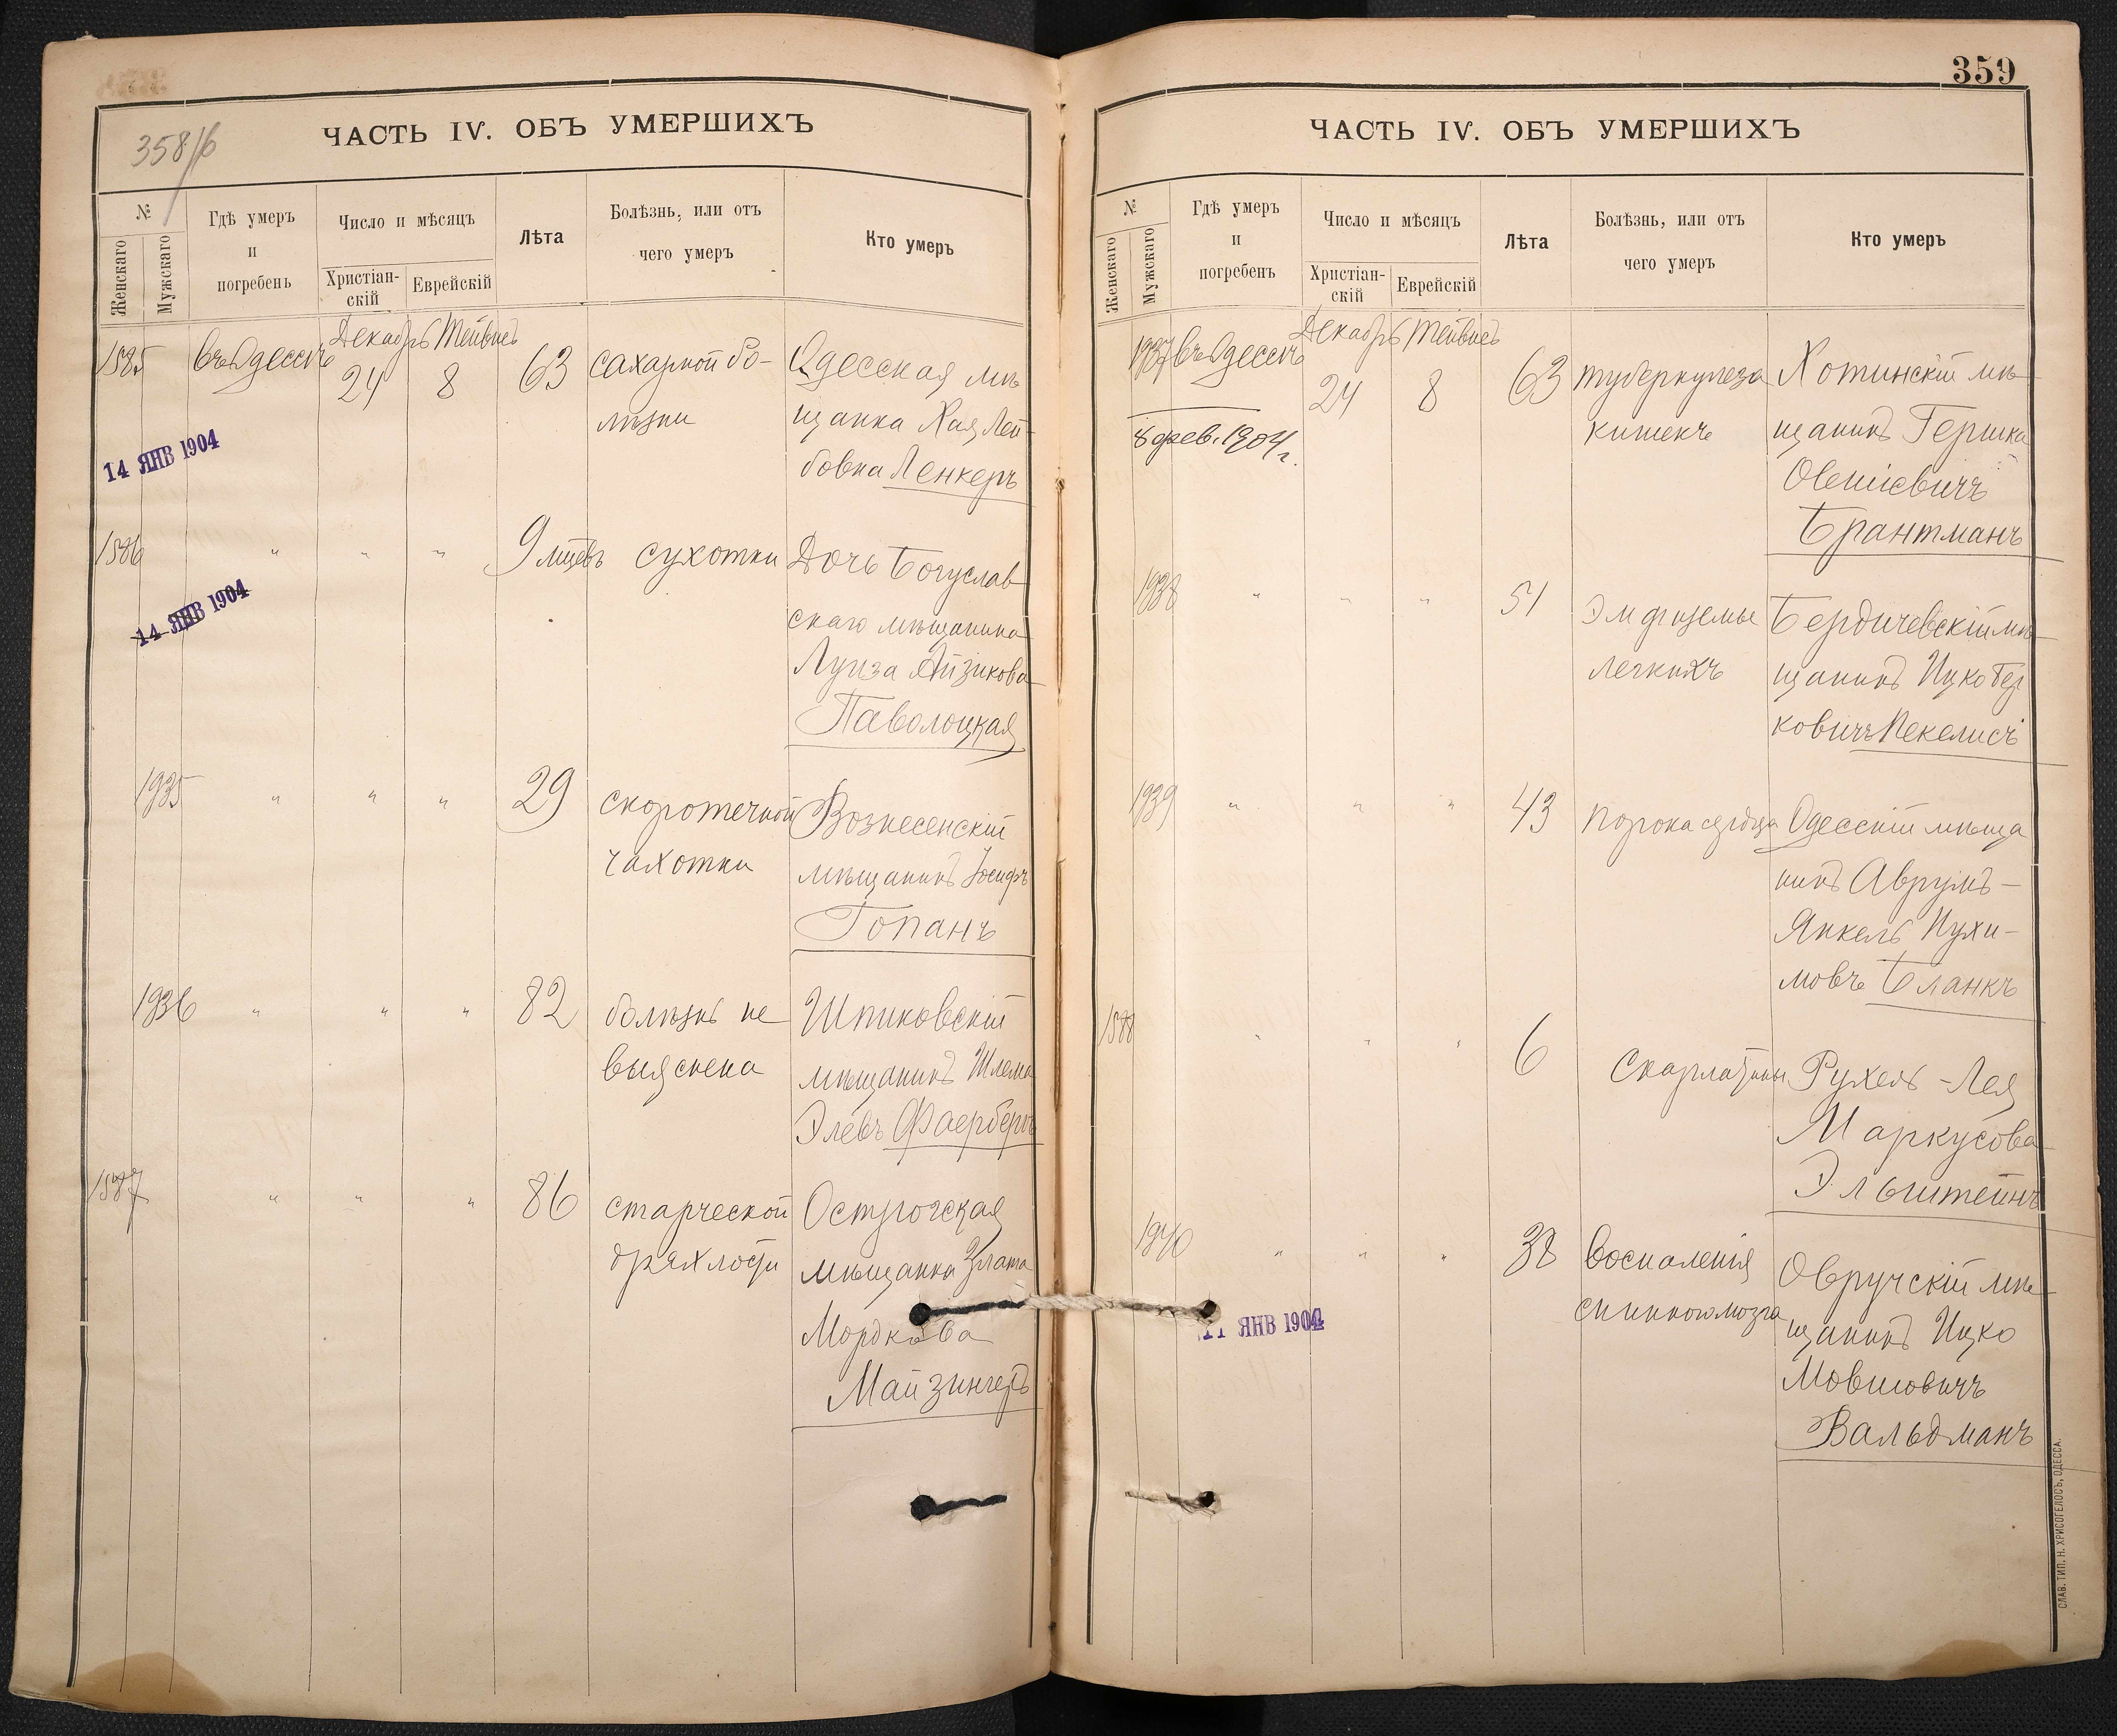 358/б
ЧАСТЬ IV. ОБЪ УМЕРШИХЪ
№
Женскаго
Мужскаго
Гдѣ умеръ
и
погребенъ
Число и мѣсяцъ
Христіан-
скій
Еврейскій
Лѣта
Болѣзнь, или отъ
чего умеръ
Кто умеръ
1585 въ Одессѣ Декабрь Тейвисъ
24 8 63 сахарной бо- Одесская мѣ
лѣзни щанка Хая Лей-
бовна Ленкеръ
14 ЯНВ 1904
1586 " " " 9 мцевъ сухотки Дочь Богуслав
скаго мѣщанина
Луиза Айзикова
Паволоцкая
14 ЯНВ 1904
1935 " " " 29 скоротечной Вознесенскій
чахотки мѣщанинъ Іосифъ
Гопанъ
1936 " " " 82 болѣзнь не Шпиковскій
выяснена мѣщанинъ Шлема
Элевъ Фаербергъ
1587 " " " 86 старческой Острогская
дряхлости мѣщанка Злата
Мордкова
Майзингеръ
359
ЧАСТЬ IV. ОБЪ УМЕРШИХЪ
№
Женскаго
Мужскаго
Гдѣ умеръ
и
погребенъ
Число и мѣсяцъ
Христіан-
скій
Еврейскій
Лѣта
Болѣзнь, или отъ
чего умеръ
Кто умеръ
1937 въ Одессѣ Декабрь Тейвисъ
24 8 63 туберкулеза Хотинскій мѣ
кишекъ щанинъ Гершка
8 фев. 1904 г.
Овшіевичъ
Брантманъ
1938 " " " 51 Эмфиземы Бердичевскій мѣ
легкихъ щанинъ Ицко Бер
ковичъ Пекелисъ
1939 " " " 43 порока сердца Одесскій мѣща
нинъ Аврумъ-
Янкель Нухи-
мовъ Бланкъ
1588 " " " 6 Скарлатины Рухель-Лея
Маркусова
Эльштейнъ
1940 " " " 38 Воспаленія Овручскій мѣ
спинного мозга щанинъ Ицко
Мовшовичъ
Вальдманъ
11 ЯНВ 1904
СЛАВ. ТИП. Н. ХРИСОГЕЛОСЪ, ОДЕССА.